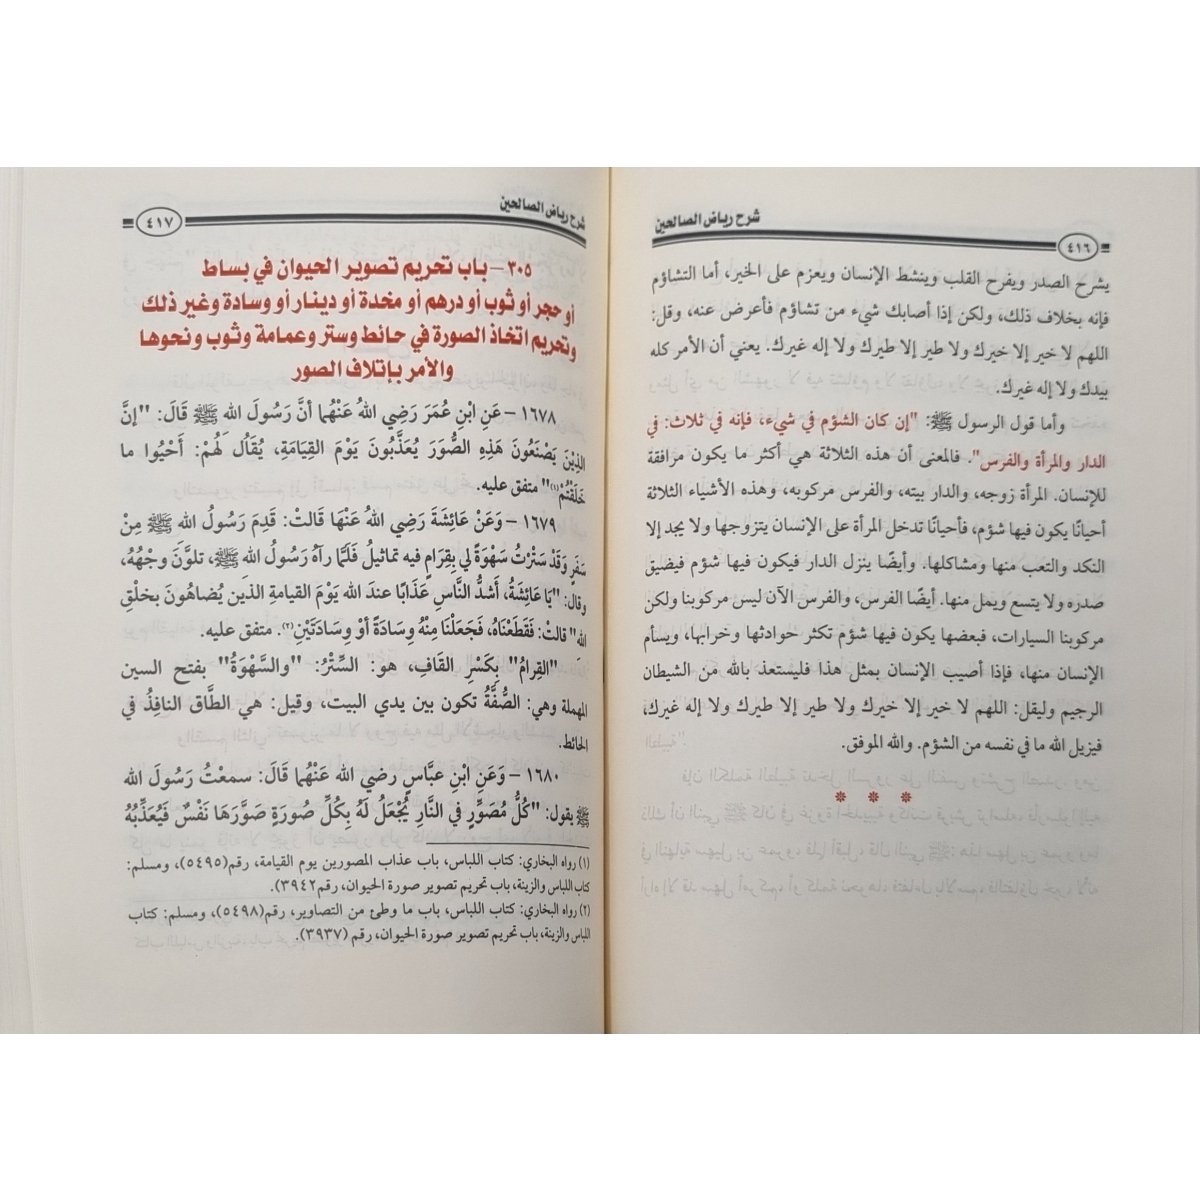 شرح رياض الصالحين
٤١٦
يشرح الصدر ويفرح القلب وينشط الإنسان ويعزم على الخير، أما التشاؤم
فإنه بخلاف ذلك، ولكن إذا أصابك شيء من تشاؤم فأعرض عنه، وقل:
اللهم لا خير إلا خيرك ولا طير إلا طيرك ولا إله غيرك. يعني أن الأمر كله
بيدك ولا إله غيرك.
وأما قول الرسول ﷺ: "إن كان الشؤم في شيء، فإنه في ثلاث: في
الدار والمرأة والفرس". فالمعنى أن هذه الثلاثة هي أكثر ما يكون مرافقة
للإنسان. المرأة زوجه، والدار بيته، والفرس مركوبه، وهذه الأشياء الثلاثة
أحيانًا يكون فيها شؤم، فأحيانًا تدخل المرأة على الإنسان يتزوجها ولا يجد إلا
النكد والتعب منها ومشاكلها. وأيضًا ينزل الدار فيكون فيها شؤم فيضيق
صدره ولا يتسع ويمل منها. أيضًا الفرس، والفرس الآن ليس مركوبنا ولكن
مركوبنا السيارات، فبعضها يكون فيها شؤم تكثر حوادثها وخرابها، ويسأم
الإنسان منها، فإذا أصيب الإنسان بمثل هذا فليستعذ بالله من الشيطان
الرجيم وليقل: اللهم لا خير إلا خيرك ولا طير إلا طيرك ولا إله غيرك،
فيزيل الله ما في نفسه من الشؤم. والله الموفق.
شرح رياض الصالحين
٤١٧
٣٠٥ - باب تحريم تصوير الحيوان في بساط
أو حجر أو ثوب أو درهم أو مخدة أو دينار أو وسادة وغير ذلك
وتحريم اتخاذ الصورة في حائط وستر وعمامة وثوب ونحوها
والأمر بإتلاف الصور
١٦٧٨ - عَنِ ابْنِ عُمَرَ رَضِي اللهُ عَنْهُما أنَّ رَسُولَ الله ﷺ قَالَ: "إنَّ
الذِيْنَ يَصْنَعُونَ هَذِهِ الصُّوَرَ يُعَذَّبُونَ يَوْمَ القِيَامَةِ، يُقَالُ لَهُمْ: أَحْيُوا ما
خَلَقْتُمْ(١)" متفق عليه.
١٦٧٩ - وَعَنْ عَائِشَةَ رَضِي اللهُ عَنْهَا قَالتْ: قَدِمَ رَسُولُ الله ﷺ مِنْ
سَفَرٍ وَقَدْ سَتَرْتُ سَهْوَةً لي بِقِرَامٍ فيه تماثيلُ فَلَمَّا رآهُ رَسُولُ الله ﷺ، تلوَّنَ وجْهُهُ،
وقال: "يَا عَائِشَةُ، أَشَدُّ النَّاسِ عَذَابًا عندَ الله يَوْمَ القيامةِ الذينَ يُضاهُونَ بخلْقِ
الله" قالتْ: فَقَطَعْنَاهُ، فَجَعَلْنَا مِنْهُ وِسَادَةً أوْ وِسَادَتَيْنِ(٢). متفق عليه.
"القِرامُ" بِكَسْرِ القَافِ، هو: السِّتْرُ: "والسَّهْوَةُ" بفتح السين
المهملة وهي: الصُّفَّةُ تكون بين يدي البيت، وقيل: هي الطَّاق النافِذُ في
الحائط.
١٦٨٠ - وَعَنِ ابْنِ عبَّاسٍ رضي الله عَنْهُما قَالَ: سمعْتُ رَسُولَ الله
ﷺ يقول: "كُلُّ مُصَوِّرٍ في النَّارِ يُجْعَلُ لَهُ بِكُلِّ صُورَةٍ صَوَّرَهَا نَفْسٌ فَيُعَذِّبُهُ
(١) رواه البخاري: كتاب اللباس، باب عذاب المصورين يوم القيامة، رقم(٥٤٩٥)، ومسلم:
كتاب اللباس والزينة، باب تحريم تصوير صورة الحيوان، رقم(٣٩٤٢).
(٢) رواه البخاري: كتاب اللباس، باب ما وطئ من التصاوير، رقم(٥٤٩٨)، ومسلم: كتاب
اللباس والزينة، باب تحريم تصوير صورة الحيوان، رقم (٣٩٣٧).